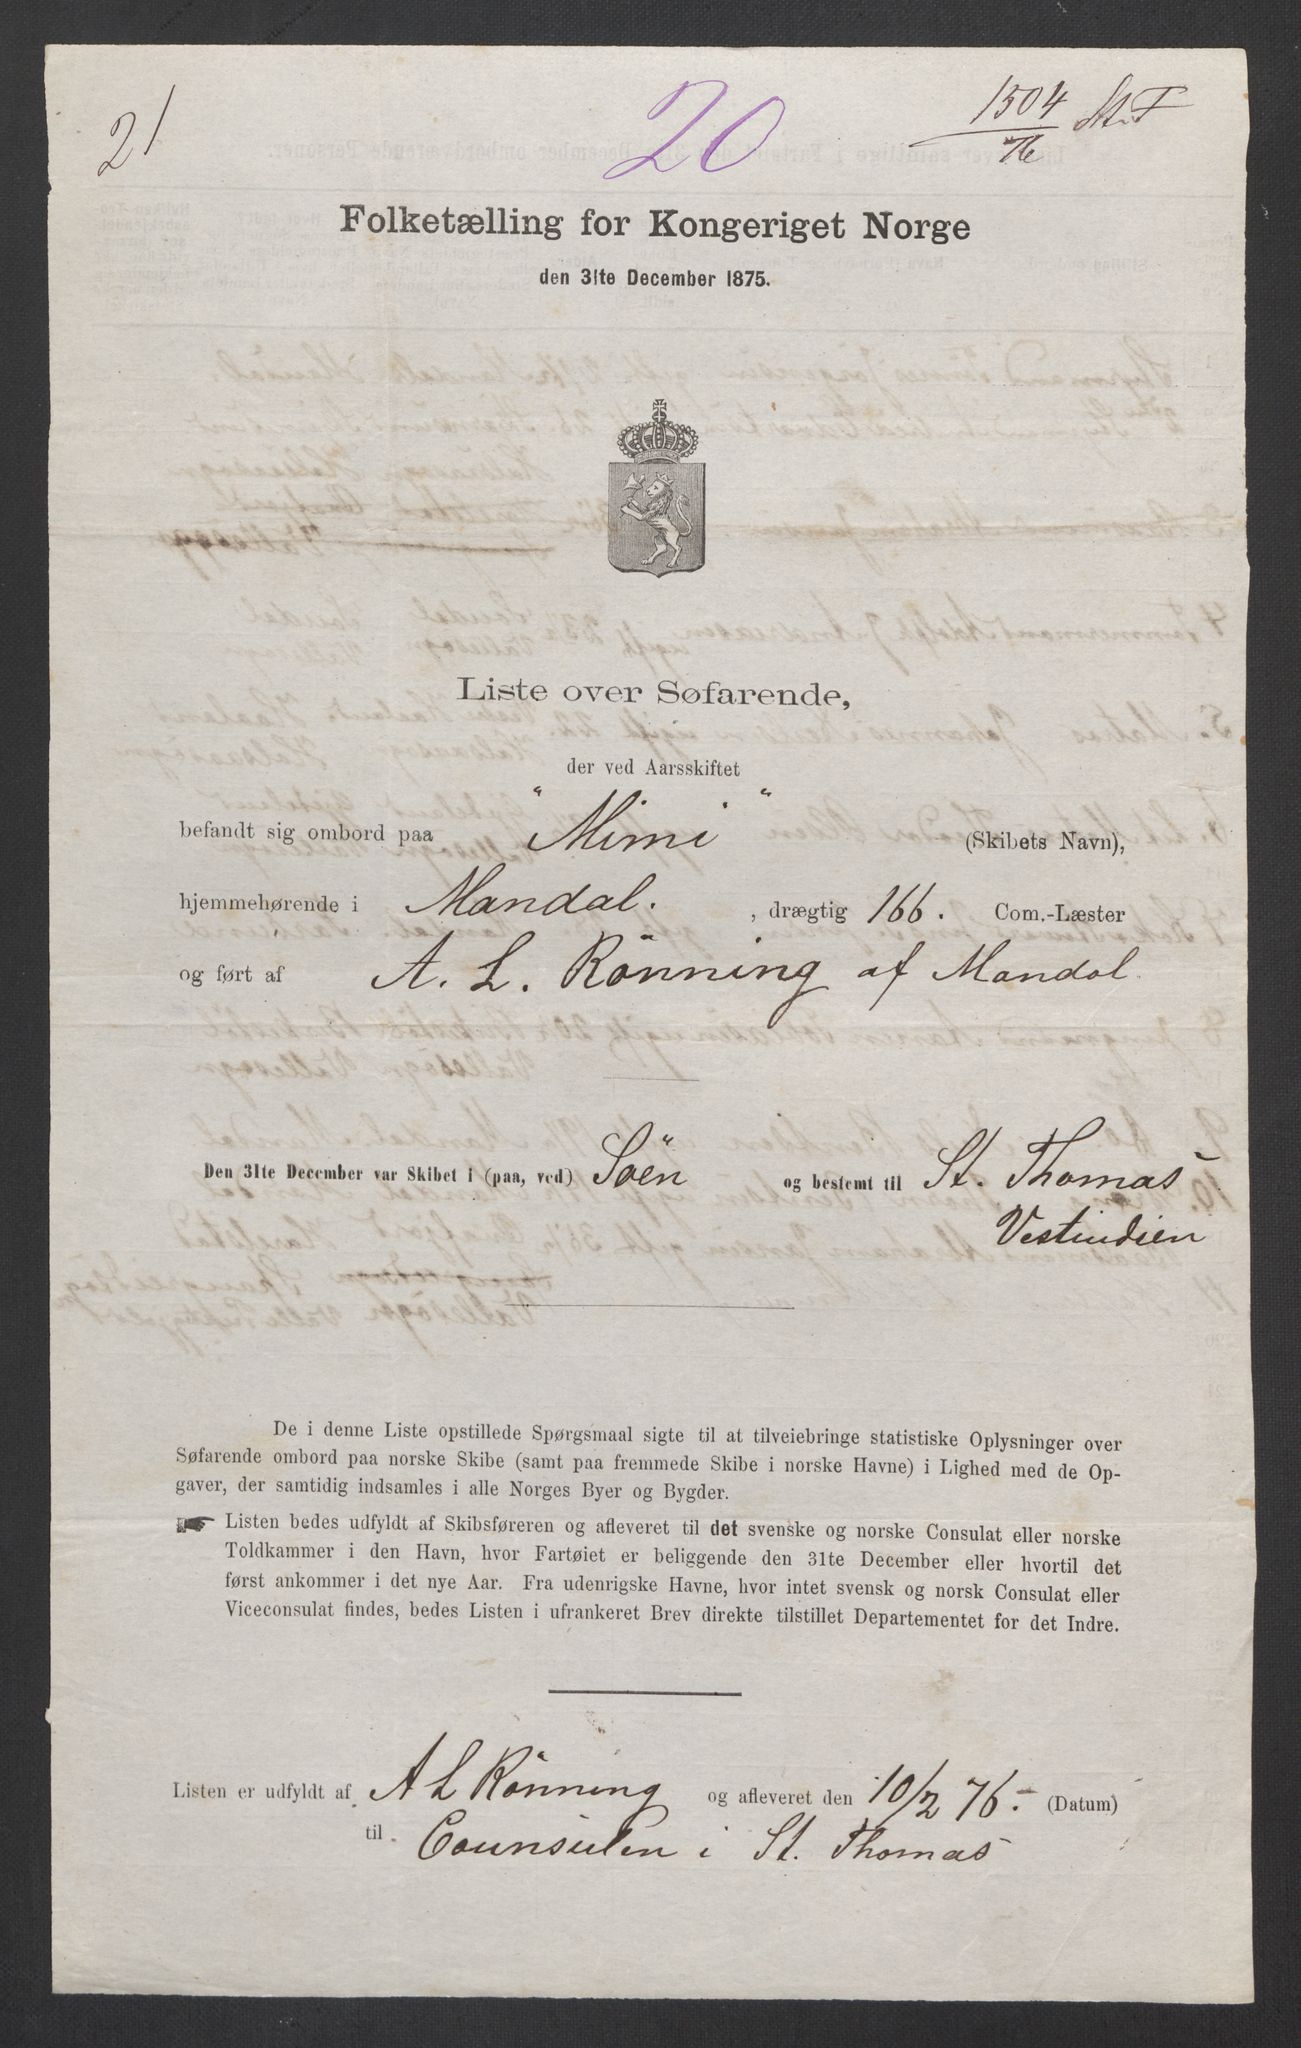 21
20
1504 St. T
76
Folketælling for Kongeriget Norge
den 31te December 1875.
Liste over Søfarende,
der ved Aarsskiftet
befandt sig ombord paa "Mimi" (Skibets Navn),
hjemmehørende i Mandal. , drægtig 166. Com.-Læster
og ført af A. L. Rönning af Mandal.
Den 31te December var Skibet i (paa, ved) Söen og bestemt til St. Thomas
Vestindien
De i denne Liste opstillede Spørgsmaal sigte til at tilveiebringe statistiske Oplysninger over
Søfarende ombord paa norske Skibe (samt paa fremmede Skibe i norske Havne) i Lighed med de Op-
gaver, der samtidig indsamles i alle Norges Byer og Bygder.
Listen bedes udfyldt af Skibsføreren og afleveret til det svenske og norske Consulat eller norske
Toldkammer i den Havn, hvor Fartøiet er beliggende den 31te December eller hvortil det
først ankommer i det nye Aar. Fra udenrigske Havne, hvor intet svensk og norsk Consulat eller
Viceconsulat findes, bedes Listen i ufrankeret Brev direkte tilstillet Departementet for det Indre.
Listen er udfyldt af A L Rönning og afleveret den 10/2 76. (Datum)
til Counsulen i St. Thomas